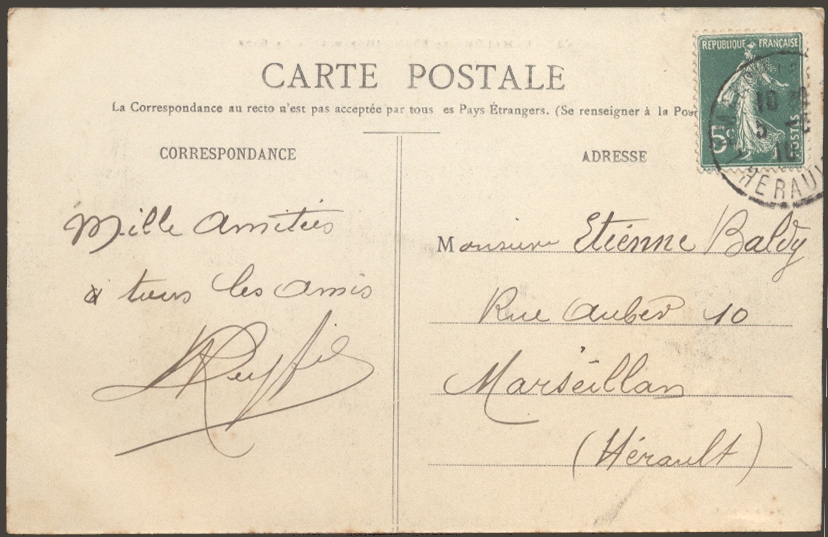 CARTE POSTALE
La Correspondance au recto n'est pas acceptée par tous es Pays Étrangers. (Se renseigner à la Pos
RÉPUBLIQUE FRANÇAISE
5c
POSTES
HERAUL
CORRESPONDANCE
ADRESSE
Mille amitiés
à tous les amis
Monsieur Etienne Baldy
Rue Auber 10
Marseillan
(Hérault)